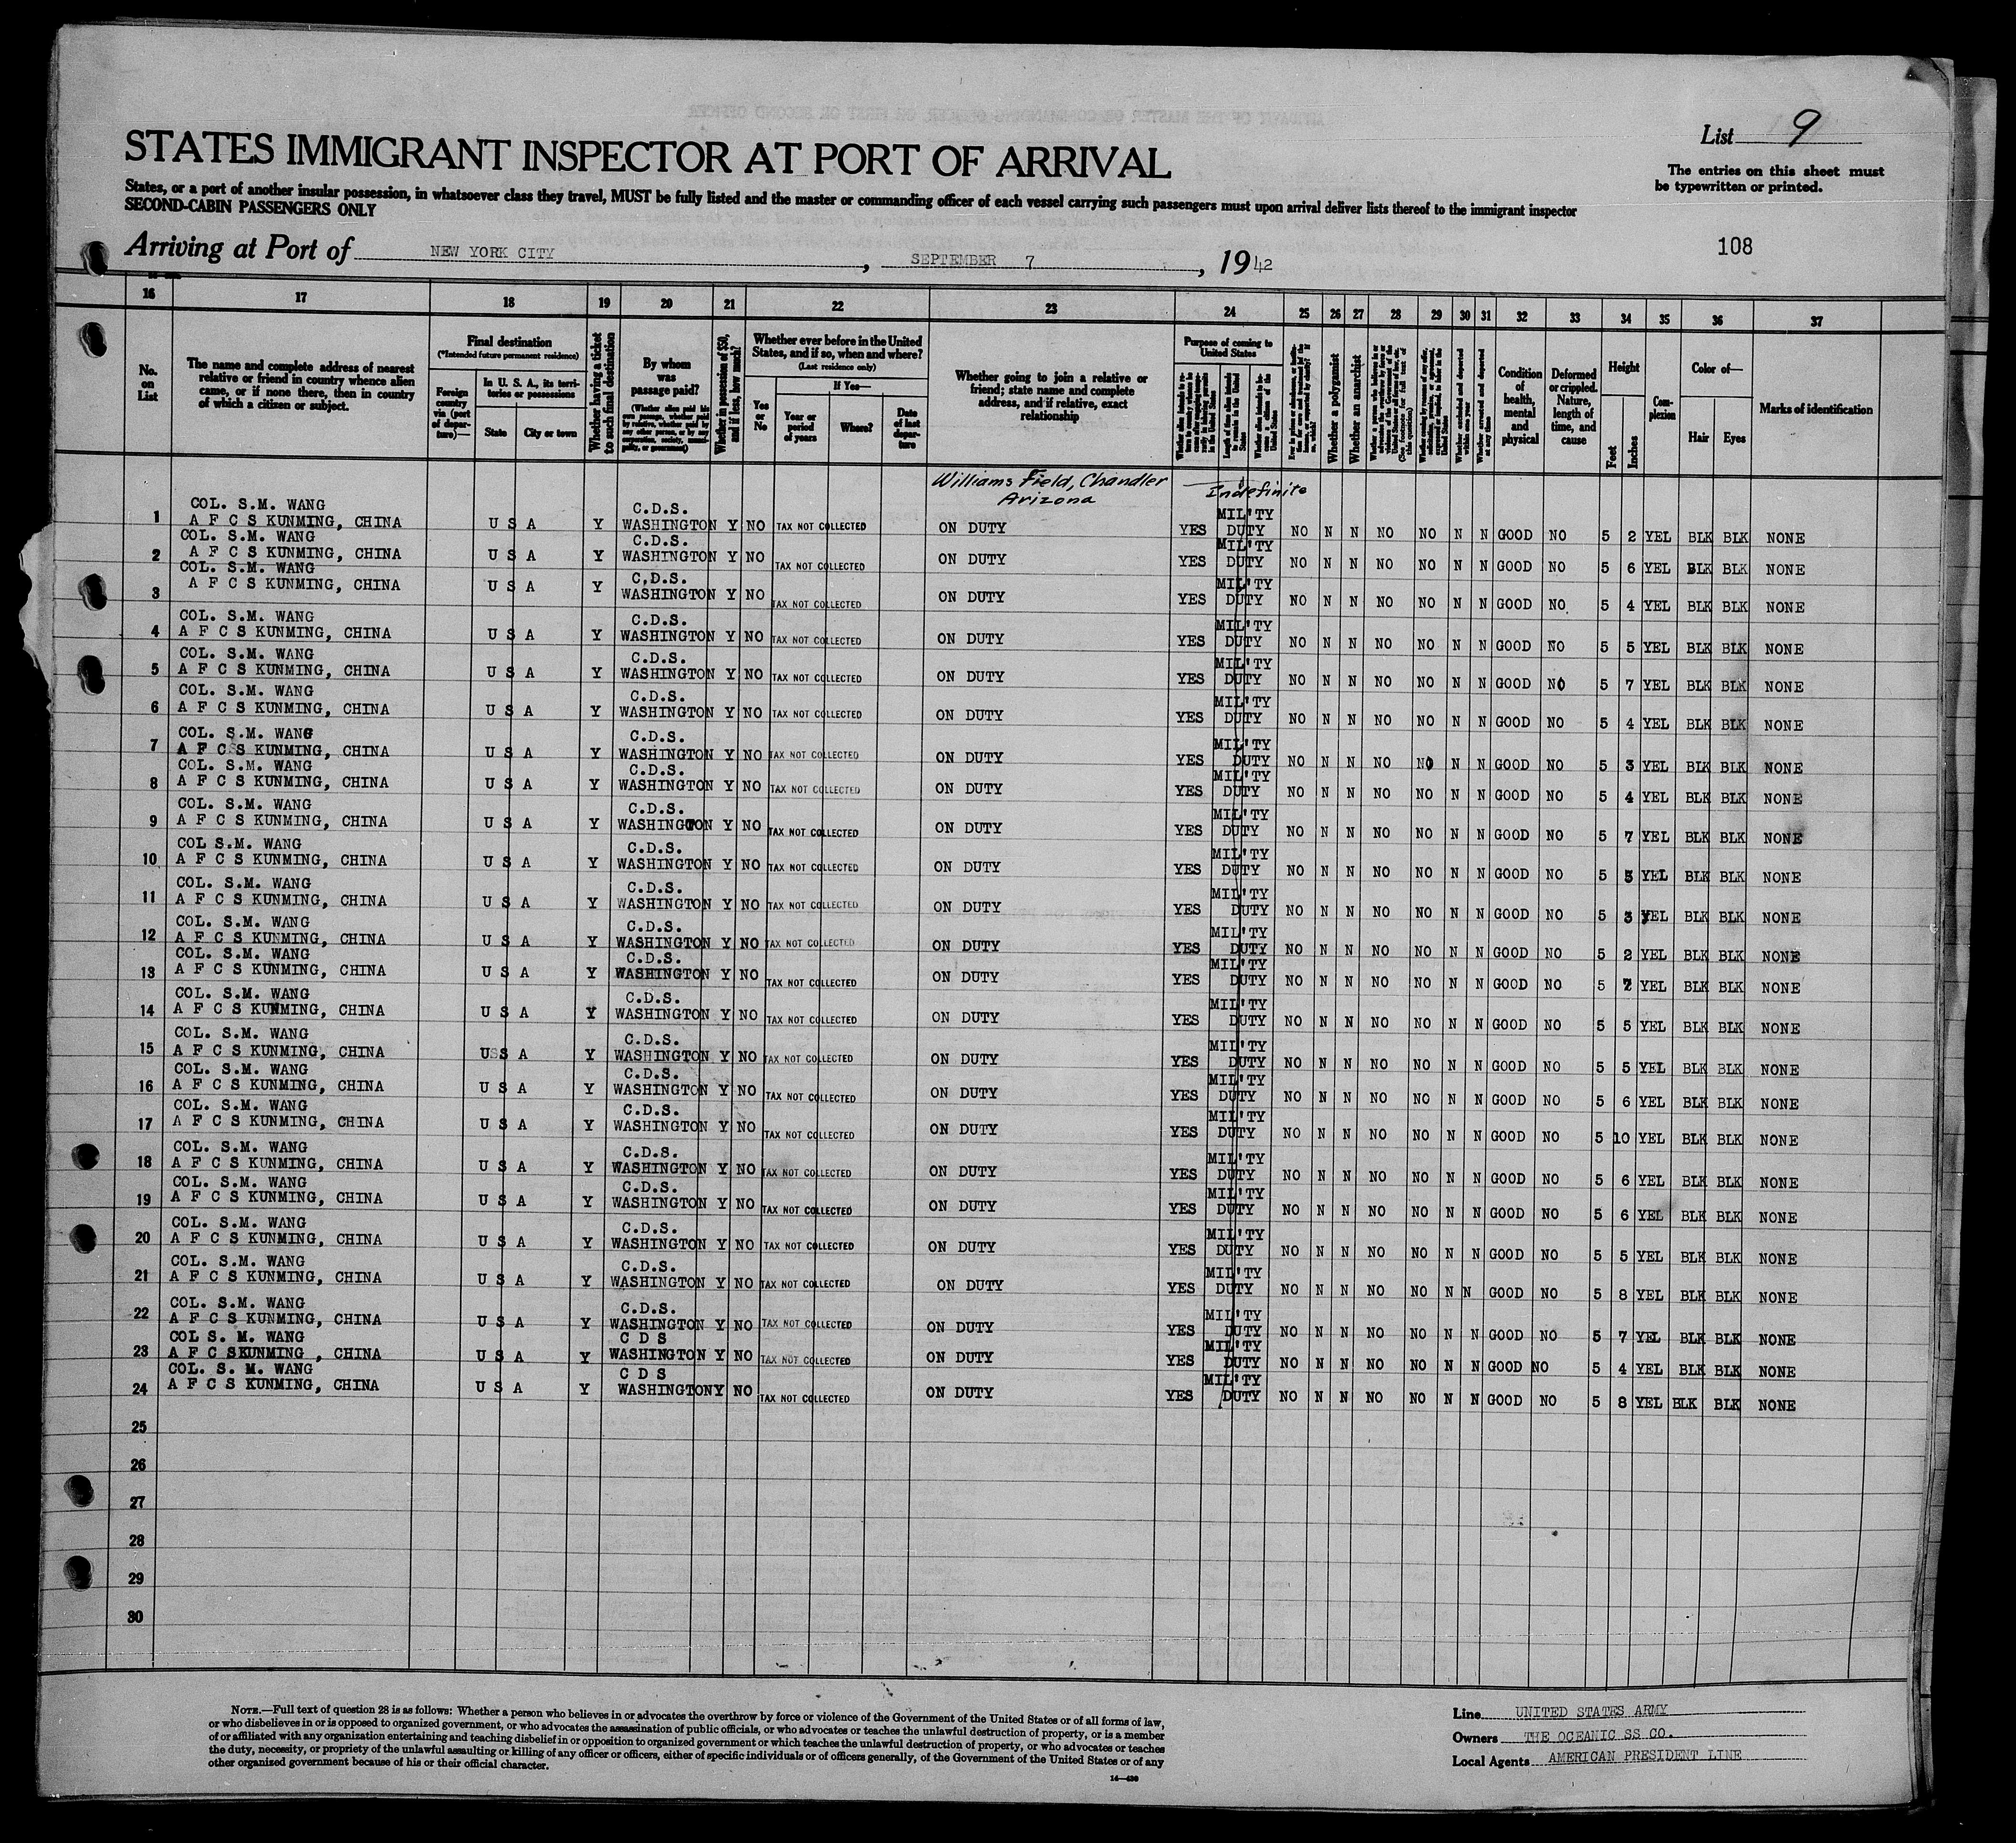 STATES IMMIGRANT INSPECTOR AT PORT OF ARRIVAL
List 9
The entries on this sheet must
be typewritten or printed.
States, or a port of another insular possession, in whatsoever class they travel, MUST be fully listed and the master or commanding officer of each vessel carrying such passengers must upon arrival deliver lists thereof to the immigrant inspector
SECOND-CABIN PASSENGERS ONLY
Arriving at Port of NEW YORK CITY, SEPTEMBER 7, 1942
108
16 17 18 19 20 21 22 23 24 25 26 27 28 29 30 31 32 33 34 35 36 37
No. on List
The name and complete address of nearest relative or friend in country whence alien came, or if none there, then in country of which a citizen or subject.
Final destination
(*Intended future permanent residence)
Foreign country via (port of departure)—
In U. S. A., its territories or possessions
State
City or town
Whether having a ticket to such final destination
By whom was passage paid?
Whether in possession of $50, and if less, how much?
Whether ever before in the United States, and if so, when and where?
(Last residence only)
Yes or No
If Yes—
Year or period of years
Where?
Date of last departure
Whether going to join a relative or friend; state name and complete address, and if relative, exact relationship
Purpose of coming to United States
Length of time alien intends to remain in the United States
Whether a polygamist
Whether an anarchist
Whether arrested and deported at any time
Condition of health, mental and physical
Deformed or crippled. Nature, length of time, and cause
Height
Feet
Inches
Complexion
Color of—
Hair
Eyes
Marks of identification
Williams Field, Chandler
Arizona
Indefinite
COL. S.M. WANG C.D.S. MIL'TY
1 A F C S KUNMING, CHINA U S A Y WASHINGTON Y NO TAX NOT COLLECTED ON DUTY YES DUTY NO N N NO NO N N GOOD NO 5 2 YEL BLK BLK NONE
COL. S.M. WANG C.D.S. MIL'TY
2 A F C S KUNMING, CHINA U S A Y WASHINGTON Y NO TAX NOT COLLECTED ON DUTY YES DUTY NO N N NO NO N N GOOD NO 5 6 YEL BLK BLK NONE
COL. S.M. WANG C.D.S. MIL'TY
3 A F C S KUNMING, CHINA U S A Y WASHINGTON Y NO TAX NOT COLLECTED ON DUTY YES DUTY NO N N NO NO N N GOOD NO. 5 4 YEL BLK BLK NONE
COL. S.M. WANG C.D.S. MIL'TY
4 A F C S KUNMING, CHINA U S A Y WASHINGTON Y NO TAX NOT COLLECTED ON DUTY YES DUTY NO N N NO NO N N GOOD NO 5 5 YEL BLK BLK NONE
COL. S.M. WANG C.D.S. MIL'TY
5 A F C S KUNMING, CHINA U S A Y WASHINGTON Y NO TAX NOT COLLECTED ON DUTY YES DUTY NO N N NO NO N N GOOD NO 5 7 YEL BLK BLK NONE
COL. S.M. WANG C.D.S. MIL'TY
6 A F C S KUNMING, CHINA U S A Y WASHINGTON Y NO TAX NOT COLLECTED ON DUTY YES DUTY NO N N NO NO N N GOOD NO 5 4 YEL BLK BLK NONE
COL. S.M. WANG C.D.S. MIL'TY
7 A F C S KUNMING, CHINA U S A Y WASHINGTON Y NO TAX NOT COLLECTED ON DUTY YES DUTY NO N N NO NO N N GOOD NO 5 3 YEL BLK BLK NONE
COL. S.M. WANG C.D.S. MIL'TY
8 A F C S KUNMING, CHINA U S A Y WASHINGTON Y NO TAX NOT COLLECTED ON DUTY YES DUTY NO N N NO NO N N GOOD NO 5 4 YEL BLK BLK NONE
COL. S.M. WANG C.D.S. MIL'TY
9 A F C S KUNMING, CHINA U S A Y WASHINGTON Y NO TAX NOT COLLECTED ON DUTY YES DUTY NO N N NO NO N N GOOD NO 5 7 YEL BLK BLK NONE
COL S.M. WANG C.D.S. MIL'TY
10 A F C S KUNMING, CHINA U S A Y WASHINGTON Y NO TAX NOT COLLECTED ON DUTY YES DUTY NO N N NO NO N N GOOD NO 5 5 YEL BLK BLK NONE
COL. S.M. WANG C.D.S. MIL'TY
11 A F C S KUNMING, CHINA U S A Y WASHINGTON Y NO TAX NOT COLLECTED ON DUTY YES DUTY NO N N NO NO N N GOOD NO 5 3 YEL BLK BLK NONE
COL. S.M. WANG C.D.S. MIL'TY
12 A F C S KUNMING, CHINA U S A Y WASHINGTON Y NO TAX NOT COLLECTED ON DUTY YES DUTY NO N N NO NO N N GOOD NO 5 2 YEL BLK BLK NONE
COL. S.M. WANG C.D.S. MIL'TY
13 A F C S KUNMING, CHINA U S A Y WASHINGTON Y NO TAX NOT COLLECTED ON DUTY YES DUTY NO N N NO NO N N GOOD NO 5 7 YEL BLK BLK NONE
COL. S.M. WANG C.D.S. MIL'TY
14 A F C S KUNMING, CHINA U S A Y WASHINGTON Y NO TAX NOT COLLECTED ON DUTY YES DUTY NO N N NO NO N N GOOD NO 5 5 YEL BLK BLK NONE
COL. S.M. WANG C.D.S. MIL'TY
15 A F C S KUNMING, CHINA U S A Y WASHINGTON Y NO TAX NOT COLLECTED ON DUTY YES DUTY NO N N NO NO N N GOOD NO 5 5 YEL BLK BLK NONE
COL. S.M. WANG C.D.S. MIL'TY
16 A F C S KUNMING, CHINA U S A Y WASHINGTON Y NO TAX NOT COLLECTED ON DUTY YES DUTY NO N N NO NO N N GOOD NO 5 6 YEL BLK BLK NONE
COL. S.M. WANG C.D.S. MIL'TY
17 A F C S KUNMING, CHINA U S A Y WASHINGTON Y NO TAX NOT COLLECTED ON DUTY YES DUTY NO N N NO NO N N GOOD NO 5 10 YEL BLK BLK NONE
COL. S.M. WANG C.D.S. MIL'TY
18 A F C S KUNMING, CHINA U S A Y WASHINGTON Y NO TAX NOT COLLECTED ON DUTY YES DUTY NO N N NO NO N N GOOD NO 5 6 YEL BLK BLK NONE
COL. S.M. WANG C.D.S. MIL'TY
19 A F C S KUNMING, CHINA U S A Y WASHINGTON Y NO TAX NOT COLLECTED ON DUTY YES DUTY NO N N NO NO N N GOOD NO 5 6 YEL BLK BLK NONE
COL. S.M. WANG C.D.S. MIL'TY
20 A F C S KUNMING, CHINA U S A Y WASHINGTON Y NO TAX NOT COLLECTED ON DUTY YES DUTY NO N N NO NO N N GOOD NO 5 5 YEL BLK BLK NONE
COL. S.M. WANG C.D.S. MIL'TY
21 A F C S KUNMING, CHINA U S A Y WASHINGTON Y NO TAX NOT COLLECTED ON DUTY YES DUTY NO N N NO NO N N GOOD NO 5 8 YEL BLK BLK NONE
COL. S.M. WANG C.D.S. MIL'TY
22 A F C S KUNMING, CHINA U S A Y WASHINGTON Y NO TAX NOT COLLECTED ON DUTY YES DUTY NO N N NO NO N N GOOD NO 5 7 YEL BLK BLK NONE
COL S. M. WANG C D S MIL'TY
23 A F C SKUNMING , CHINA U S A Y WASHINGTON Y NO TAX NOT COLLECTED ON DUTY YES DUTY NO N N NO NO N N GOOD NO 5 4 YEL BLK BLK NONE
COL. S. M. WANG C D S MIL'TY
24 A F C S KUNMING, CHINA U S A Y WASHINGTONY NO TAX NOT COLLECTED ON DUTY YES DUTY NO N N NO NO N N GOOD NO 5 8 YEL BLK BLK NONE
25
26
27
28
29
30
NOTE.—Full text of question 28 is as follows: Whether a person who believes in or advocates the overthrow by force or violence of the Government of the United States or of all forms of law,
or who disbelieves in or is opposed to organized government, or who advocates the assassination of public officials, or who advocates or teaches the unlawful destruction of property, or is a member
of or affiliated with any organization entertaining and teaching disbelief in or opposition to organized government or which teaches the unlawful destruction of property, or who advocates or teaches
the duty, necessity, or propriety of the unlawful assaulting or killing of any officer or officers, either of specific individuals or of officers generally, of the Government of the United States or of any
other organized government because of his or their official character.
Line UNITED STATES ARMY
Owners THE OCEANIC SS CO.
Local Agents AMERICAN PRESIDENT LINE